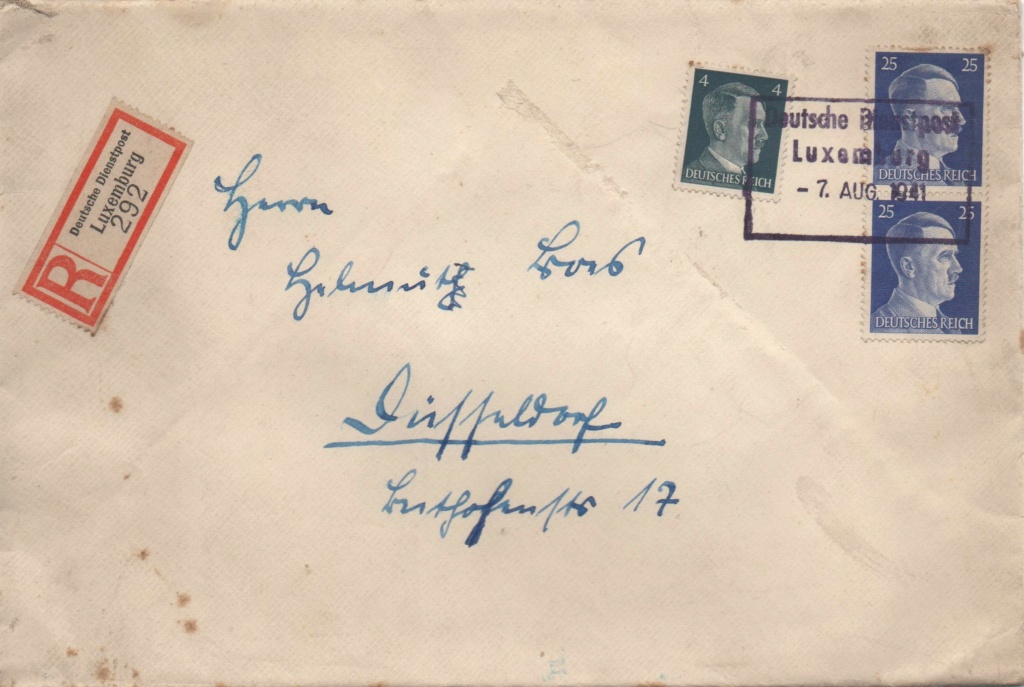 R
Deutsche Dienstpost
Luxemburg
292
4 4
DEUTSCHES REICH
25 25
DEUTSCHES REICH
25 25
DEUTSCHES REICH
Deutsche Dienstpost
Luxemburg
- 7. AUG. 1941
Herrn
Helmuth Boes
Düsseldorf
Beethofenstr 17